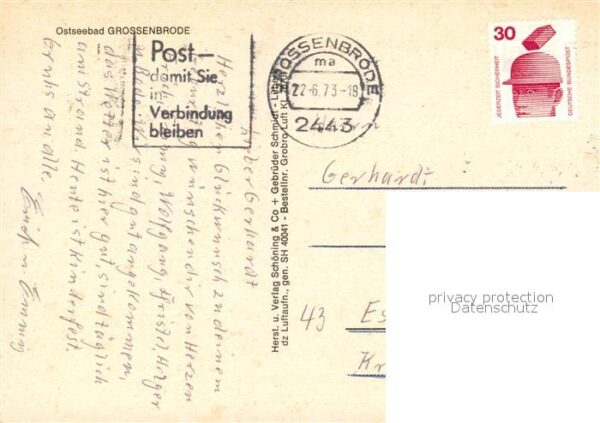 Ostseebad GROSSENBRODE
Post-
damit Sie
in
Verbindung
bleiben
GROSSENBRODE
ma
22.-6.73-18
2443
30
JEDERZEIT SICHERHEIT
DEUTSCHE BUNDESPOST
Lieber Gerhardt
Herzlichen Glückwunsch zu deinem
wünschen dir von Herzen
Wolfgang, Christel, Holger
sind gut angekommen,
das Wetter ist hier gut sind täglich
am Strand. Heute ist Kinderfest.
Gruß an alle
Herst. u. Verlag Schöning & Co + Gebrüder Schmidt -
dz Luftaufn., gen. SH 40041 - Bestellnr. Grobro Luft
Herrn
Gerhardt
43 Es
Kr
privacy protection
Datenschutz